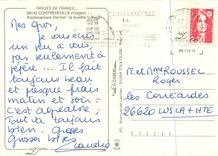 IMAGES DE FRANCE...
88140 CONTREXÉVILLE (Vosges)
Établissement thermal : la buvette
Mes gros,
Je vous écris
un peu à vous
pas seulement à
pépère ... Il fait
toujours beau
et presque frais
matin et soir =
c'est agréable.
Tout va toujours
bien. Grosses
Grosses bises
Claudie
CONTREXEVILLE
Mr et Mme ROUSSEL
Roger
les
26620 LUS LA + HTE